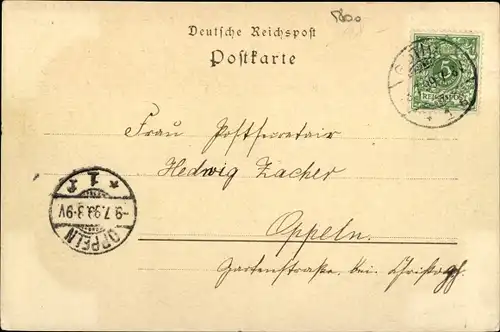 Deutsche Reichspost
Postkarte
REICHSPOST
Frau Postsecretair
Hedwig Zacher
Oppeln.
Gartenstraße, bei
* 1. f
-9.7.99.8-9V
OPPELN